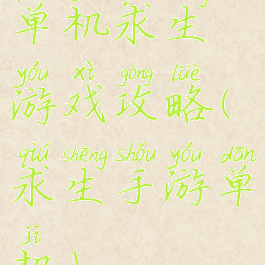 单机求生
yóu xì gōng lüè
游戏攻略(
qiú shēng shǒu yóu dān
求生手游单
jī
机)